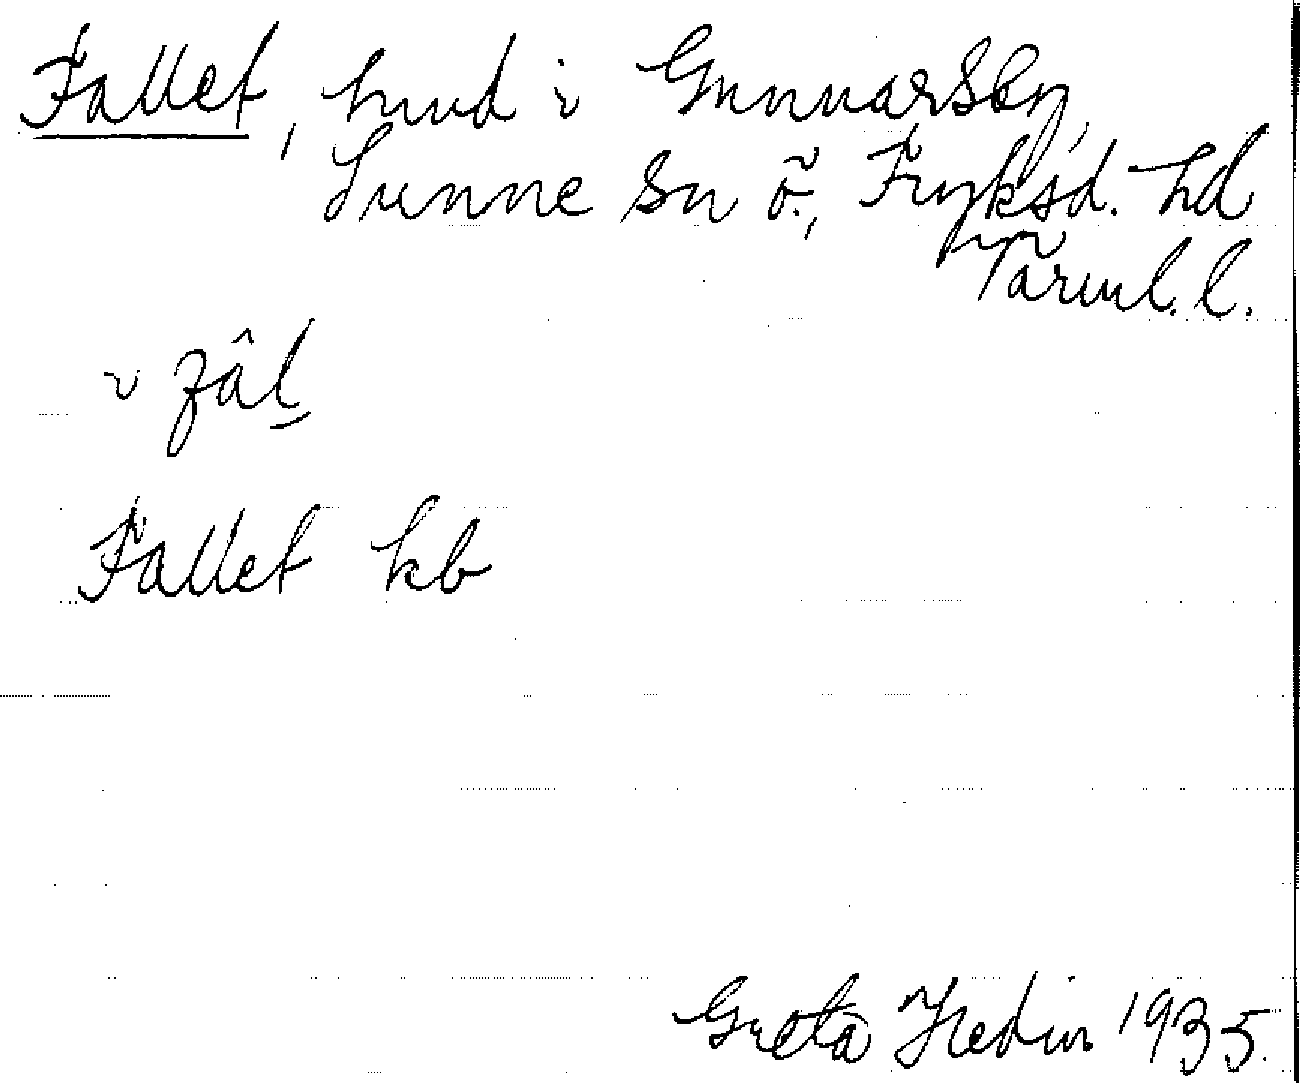 Fallet, hmd i Gunnarsby,
Sunne sn ö., Fryksd. hd
Värml. l.
i fâl
Fallet kb
Greta Hedin 1935.